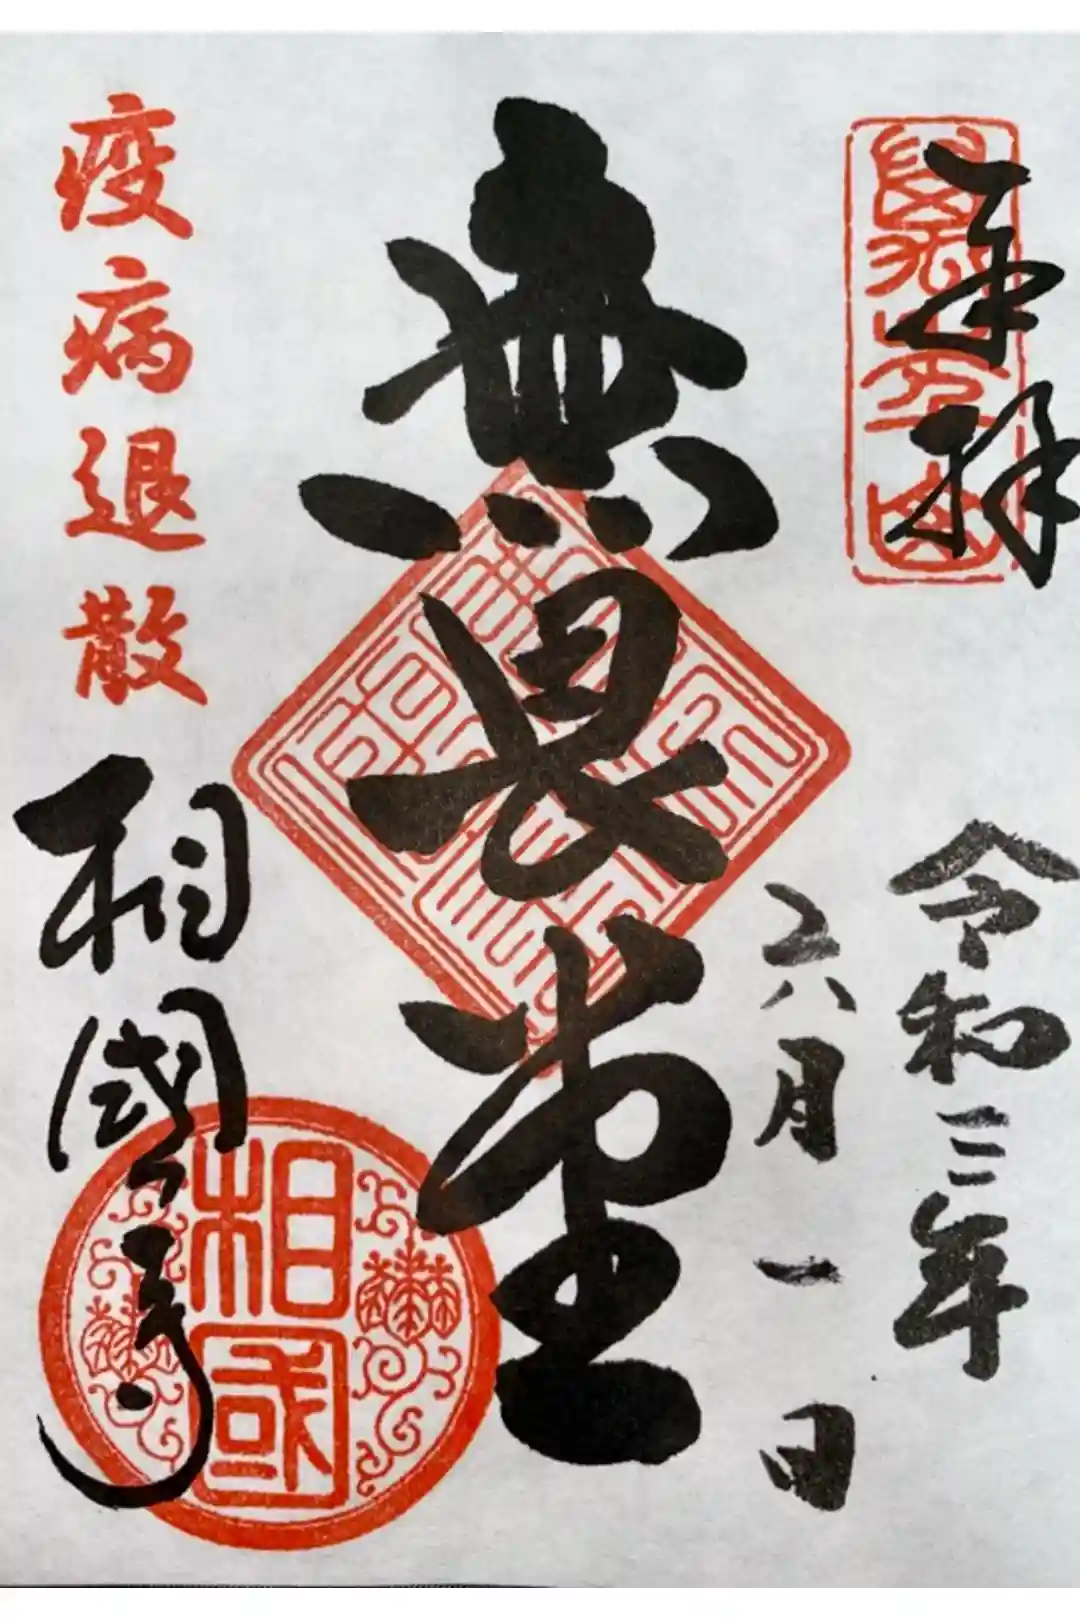 奉拝
令和三年
六月一日
無畏堂
疫病退散
相國寺
相國